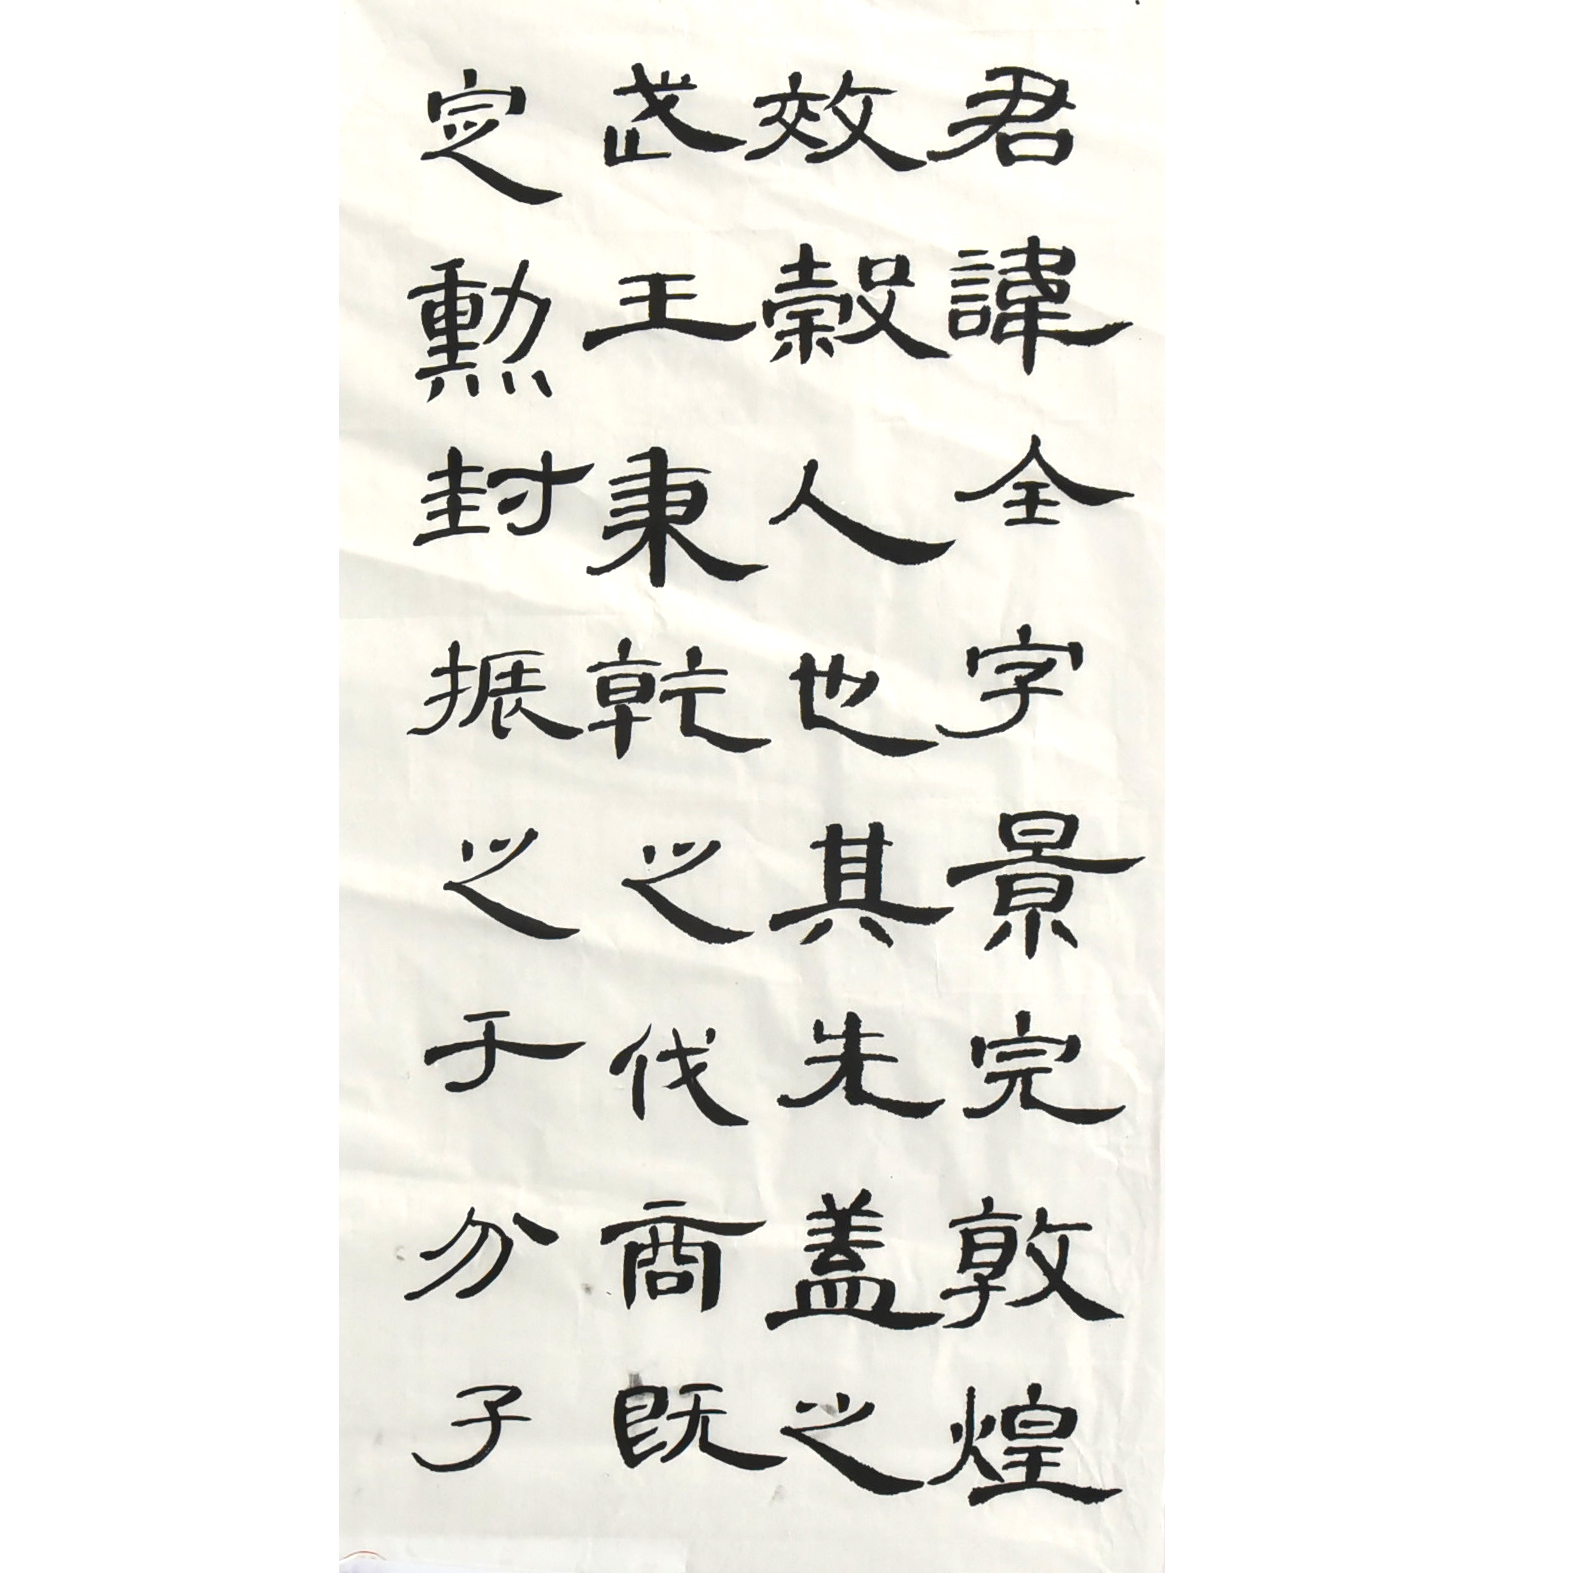 君諱全字景完敦煌
效穀人也其先蓋之
武王秉乾之伐商既
定勳封振之于分子